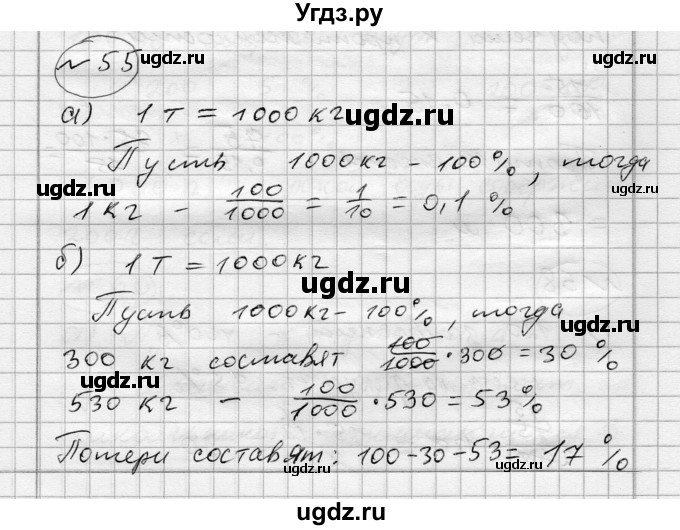 Угдз.ру
№ 55
а) 1 т = 1000 кг
Пусть 1000 кг - 100%, тогда
1 кг - 100/1000 = 1/10 = 0,1 %
б) 1 т = 1000 кг
Пусть 1000 кг - 100%, тогда
300 кг составят 100/1000 · 300 = 30 %
530 кг - 100/1000 · 530 = 53 %
Потери составят: 100 - 30 - 53 = 17 %
ugdz.ru
ugdz.ru
ugdz.ru
ugdz.ru
ugdz.ru
ugdz.ru
ugdz.ru
ugdz.ru
ugdz.ru
ugdz.ru
ugdz.ru
ugdz.ru